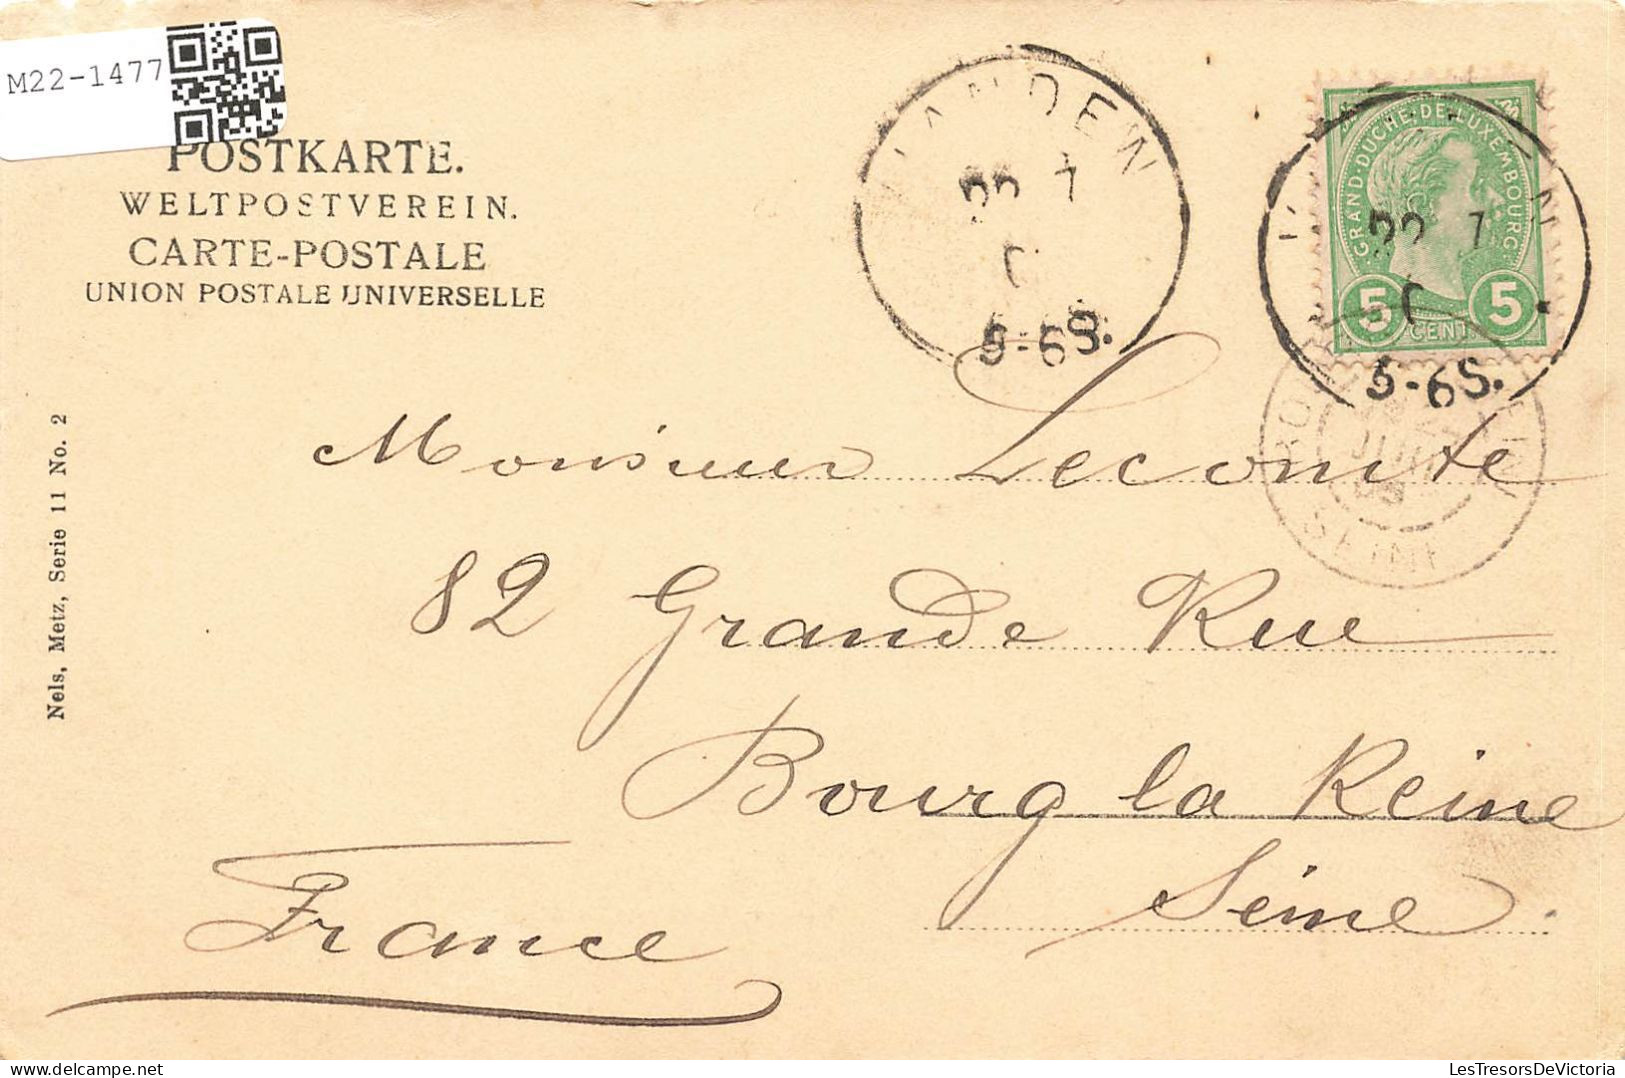 M22-1477
POSTKARTE.
WELTPOSTVEREIN.
CARTE-POSTALE
UNION POSTALE UNIVERSELLE
Nels, Metz, Serie 11 No. 2
VIANDEN
22 7
5-6S.
GRAND-DUCHÉ-DE-LUXEMBOURG
5 CENT 5
22 7
5-6S.
SEINE
Monsieur Lecomte
82 Grande Rue
Bourg la Reine
Seine
France
LesTresorsDeVictoria